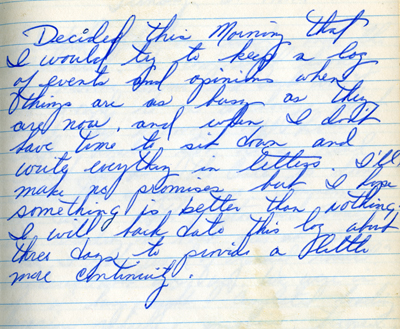 Decided this Morning that
I would try to keep a log
of events and opinions when
things are as busy as they
are now, and when I don't
have time to sit down and
write everything in letters. I'll
make no promises but I hope
something is better than nothing.
I will back date this log about
three days to provide a little
more continuity.